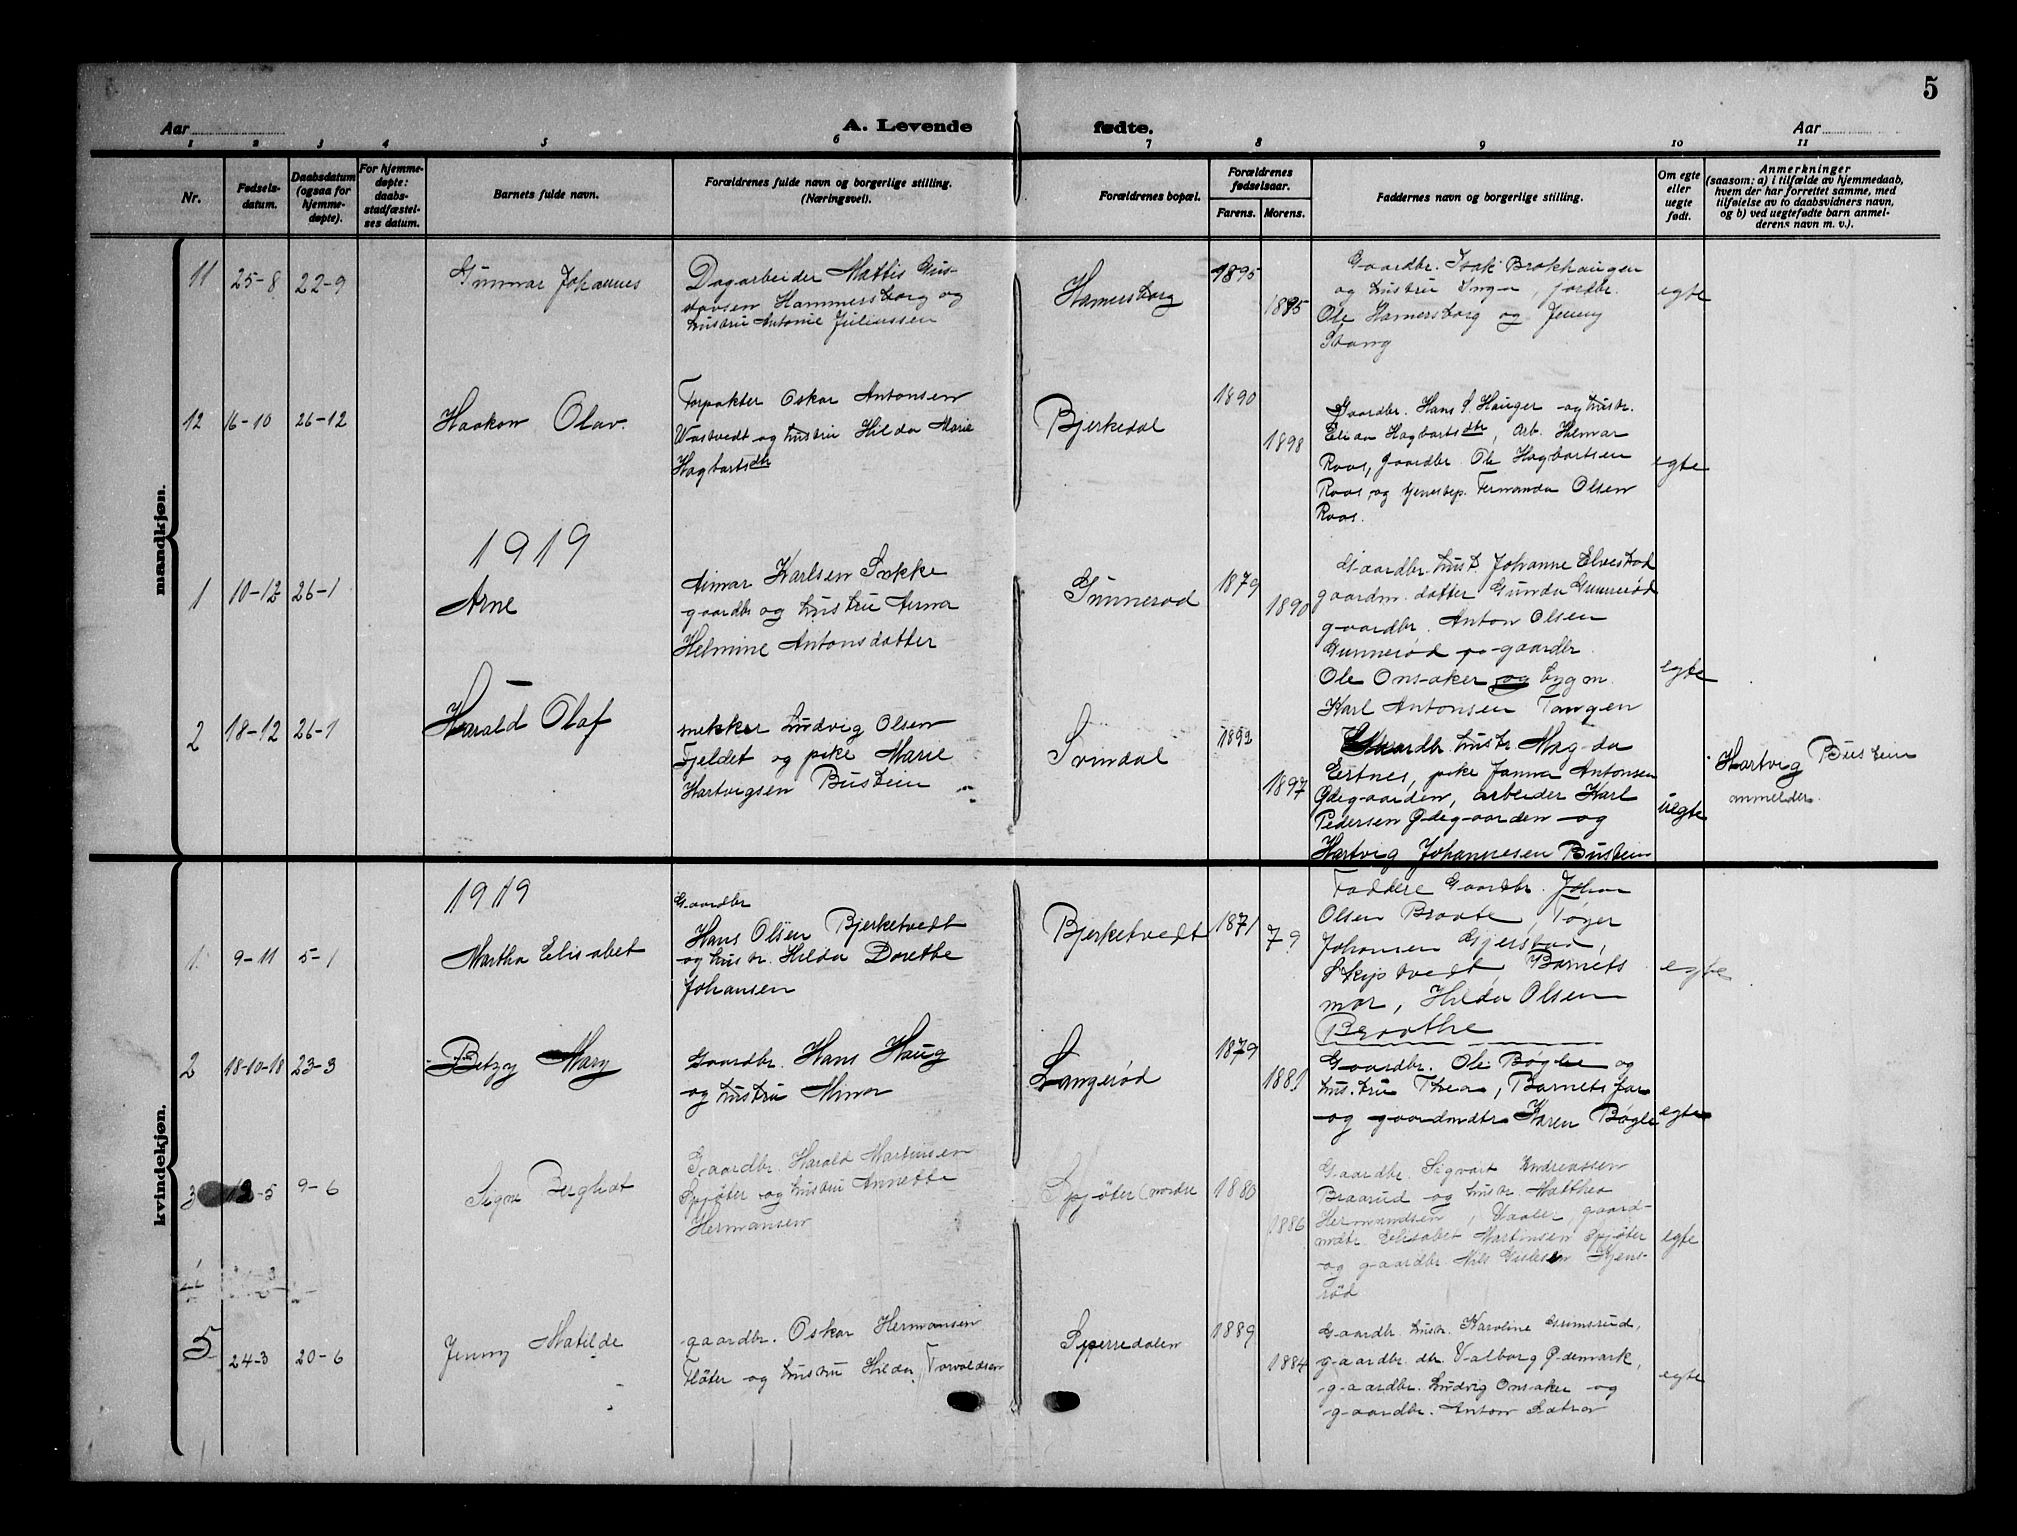 5
Aar
A. Levende fødte.
Aar
1 2 3 4 5 6 7 8 9 10 11
Nr.
Fødsels-
datum.
Daabsdatum
(ogsaa for
hjemme-
døpte).
For hjemme-
døpte:
daabs-
stadfæstel-
ses datum.
Barnets fulde navn.
Forældrenes fulde navn og borgerlige stilling.
(Næringsvei).
Forældrenes bopæl.
Forældrenes
fødselsaar.
Farens. Morens.
Faddernes navn og borgerlige stilling.
Om egte
eller
uegte
født.
Anmerkninger
(saasom: a) i tilfælde av hjemmedaab,
hvem der har forrettet samme, med
tilføielse av to daabsvidners navn,
og b) ved uegtefødte barn anmel-
derens navn m. v.).
mandkjøn.
11 25-8 22-9
Gunnar Johannes
Dagarbeider Mattis Gus-
tavsen Hammersborg og
hustru Antonie Juliussen
Hamersborg
1895
1895
Gaardbr. Isak Brokhaugen
og hustru Inga, jordbr.
Ole Hamersborg og Jenny
Stang
egte
12 6-10 26-12
Haakon Olav.
Forpakter Oskar Antonsen
Vastvedt og hustru Hilda Marie
Hagbartsdtr
Bjerkedal
1890
1898
Gaardbr. Hans S. Hauger og hustr.
Elida Hagbartsdtr, Arb. Helmar
Roos, gaardbr. Ole Hagbartsen
Roos, og tjenestep. Fernanda Olsen
Roos.
egte
1919
1 10-12 26-1
Arne
Aimar Karlsen Sokke
gaardbr og hustru Anna
Helmine Antonsdatter
Gunnerød
1879
1890
Gaardbr hust. Johanne Elvestad
gaardm. datter Gunda Gunnerød
gaardbr. Anton Olsen
Gunnerød gaardbr.
Ole Onsaker og bygm.
Karl Antonsen Tangen
egte
2 18-12 26-1
Harald Olaf
snekker Ludvig Olsen
Fjeldet og pike Marie
Hartvigsen Bustein
Svindal
1892
1897
Gaardbr hustr Magda
Ertnes, pike Janna Antonsen
Ødegaarden, arbeider Karl
Pedersen Ødegaarden og
Hartvig Johannesen Bustein
uegte
Hartvig Bustein
anmelder.
kvindekjøn.
1919
1 9-11 5-1
Martha Elisabet
Gaardbr
Hans Olsen Bjerketvedt
og hustr. Hilda Dorethe
Johansen
Bjerketvedt
1871
79
Faddere Gaardbr. Johan
Olsen Braate, Tøger
Johansen Gjerstad,
Skiptvedt Barnets
mor, Hilda Olsen
Braathe
egte
2 18-10-18 23-3
Betzy Mary
Gaardbr. Hans Haug
og hustru Mina
Langerød
1879
1881
Gaardbr. Ole Bøgle og
hustru Thea, Barnets far
og gaardmdtr Karen Bøgle
egte
3 12-5 9-6
Signe Berghat
Gaardbr. Harald Martinsen
Spjøter og hustru Annette
Hermansen
Spjøter (nordre
1880
1886
Gaardbr. Sigvart Andreassen
Braarud og hustr. Matthea
Hermundsen, Vaaler, gaard-
mdtr. Elisabet Martinsen Spjøter
og gaardbr. Nils
rød
egte
5 24-3 20-6
Jenny Matilde
gaardbr. Oskar Hermansen
Fløter og hustru Hilda Torvaldsen
Sperredalen
1889
1884
Gaardbr. hustr. Karoline Gumsrud,
gaardbr. dtr. Valborg Ødemark,
gaardbr. Ludvig Onsaker og
gaardbr. Anton Sætra
egte